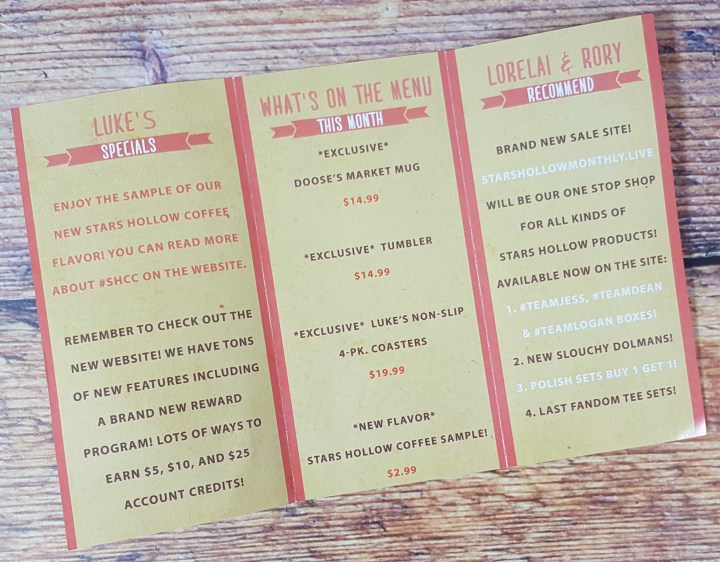 LUKE'S
SPECIALS
ENJOY THE SAMPLE OF OUR
NEW STARS HOLLOW COFFEE
FLAVOR! YOU CAN READ MORE
ABOUT #SHCC ON THE WEBSITE.
REMEMBER TO CHECK OUT THE
NEW WEBSITE! WE HAVE TONS
OF NEW FEATURES INCLUDING
A BRAND NEW REWARD
PROGRAM! LOTS OF WAYS TO
EARN $5, $10, AND $25
ACCOUNT CREDITS!
WHAT'S ON THE MENU
THIS MONTH
*EXCLUSIVE*
DOOSE'S MARKET MUG
$14.99
*EXCLUSIVE* TUMBLER
$14.99
*EXCLUSIVE* LUKE'S NON-SLIP
4-PK. COASTERS
$19.99
*NEW FLAVOR*
STARS HOLLOW COFFEE SAMPLE!
$2.99
LORELAI & RORY
RECOMMEND
BRAND NEW SALE SITE!
STARSHOLLOWMONTHLY.LIVE
WILL BE OUR ONE STOP SHOP
FOR ALL KINDS OF
STARS HOLLOW PRODUCTS!
AVAILABLE NOW ON THE SITE:
1. #TEAMJESS, #TEAMDEAN
& #TEAMLOGAN BOXES!
2. NEW SLOUCHY DOLMANS!
3. POLISH SETS BUY 1 GET 1!
4. LAST FANDOM TEE SETS!